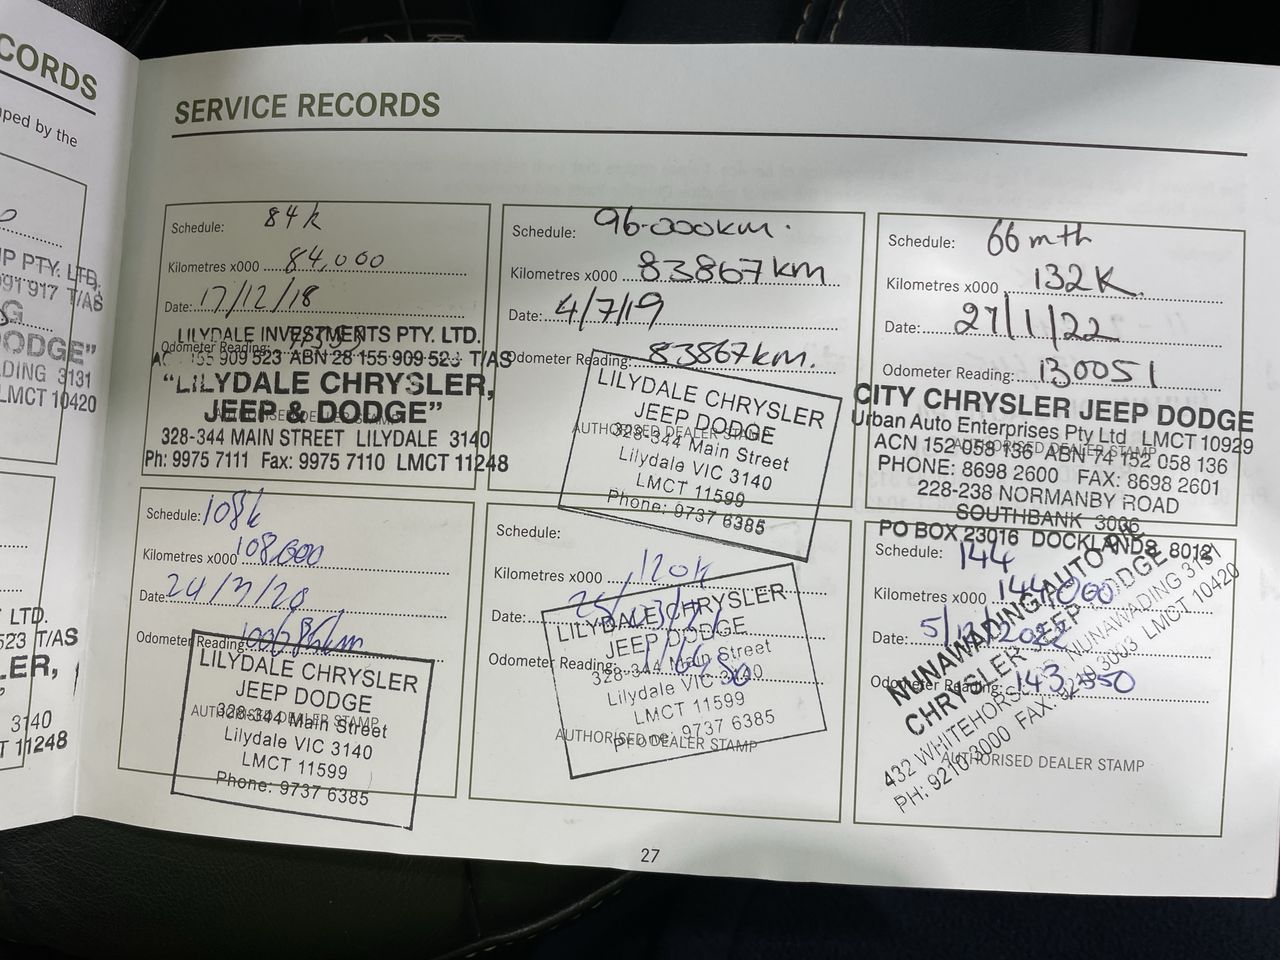 CORDS
ped by the
UP PTY. LTD.
917 T/AS
ODGE"
DING 3131
LMCT 10420
LTD.
523 T/AS
LER,
3140
T 11248
SERVICE RECORDS
Schedule: 84k
Kilometres x000 84,000
Date: 17/12/18
Odometer Reading:
LILYDALE INVESTMENTS PTY. LTD.
155 909 523 ABN 28 155 909 523 T/AS
"LILYDALE CHRYSLER,
JEEP & DODGE"
AUTHORISED DEALER STAMP
328-344 MAIN STREET LILYDALE 3140
Ph: 9975 7111 Fax: 9975 7110 LMCT 11248
Schedule: 96.000km.
Kilometres x000 83867km
Date: 4/7/19
Odometer Reading: 83867km.
LILYDALE CHRYSLER
JEEP DODGE
AUTHORISED DEALER STAMP
328-344 Main Street
Lilydale VIC 3140
LMCT 11599
Phone: 9737 6385
Schedule: 66 mth
Kilometres x000 132K.
Date: 27/1/22
Odometer Reading: 130051
CITY CHRYSLER JEEP DODGE
Urban Auto Enterprises Pty Ltd LMCT 10929
ACN 152 058 136 ABN 74 152 058 136
AUTHORISED DEALER STAMP
PHONE: 8698 2600 FAX: 8698 2601
228-238 NORMANBY ROAD
SOUTHBANK 3006
PO BOX 23016 DOCKLANDS 8012
Schedule: 108k
Kilometres x000 108,000
Date:
Odometer Reading:
LILYDALE CHRYSLER
JEEP DODGE
AUTHORISED DEALER STAMP
328-344 Main Street
Lilydale VIC 3140
LMCT 11599
Phone: 9737 6385
Schedule:
Kilometres x000 120k
Date:
Odometer Reading:
LILYDALE CHRYSLER
JEEP DODGE
328-344 Main Street
Lilydale VIC 3140
LMCT 11599
Phone: 9737 6385
AUTHORISED DEALER STAMP
Schedule: 144
Kilometres x000 144,000
Date: 5/12/2022
Odometer Reading: 143,
NUNAWADING AUTO
CHRYSLER JEEP DODGE
432 WHITEHORSE NUNAWADING 3131
PH: 9210 3000 FAX: 3003 LMCT 10420
AUTHORISED DEALER STAMP
27